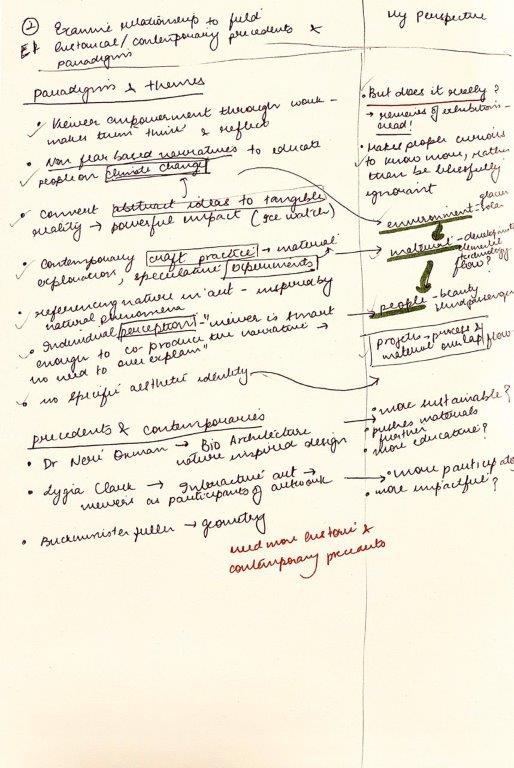 ② Examine relationship to field
My Perspective
historical/contemporary precedents &
paradigms
paradigms & themes
✓ • Viewer empowerment through work -
makes them think & reflect
• Non fear based narratives to educate
✓ people on climate change
• Convert abstract ideas to tangible
✓ reality → powerful impact (ice watch)
• Contemporary craft practice → material
✓ exploration, speculative experiments
✓ • referencing nature in art - inspired by
natural phenomena
• Individual perception - "viewer is smart
✓ enough to co-produce the narrative →
no need to over explain"
✓ • no specific aesthetic identity
precedents & contemporaries
• Dr Neri Oxman → Bio Architecture
nature inspired design
• Lygia Clark → Interactive art →
viewers as participants of artwork
• Buckminster fuller → geometry
need more historic &
contemporary precedents
• But does it really?
→ reviews of exhibitions -
read!
• Makes people curious
✓ to know more, rather
than be blissfully
ignorant
environment - glacier
solar
material -
technology
flow?
people - beauty
projects → process &
✓ material overlap flow
• more sustainable?
• pushes materials
further
• more educative?
• more participatory
• more impactful?